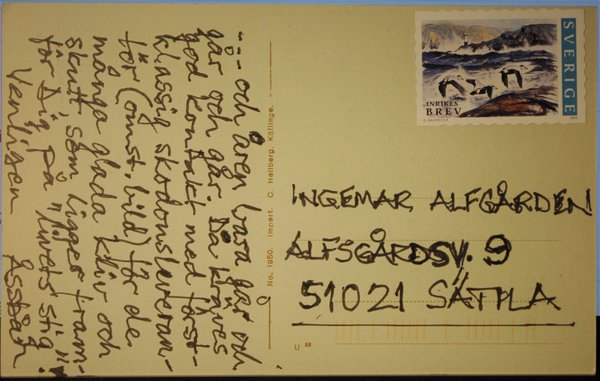 --- och åren bara går och
går och går. Då kräves
god kontakt med först-
klassig skodonsleveran-
tör (omst. bild) för de
många glada kliv och
skutt, som ligger fram-
för Dig på "livets stig"!
Vänligen
No. 1950. Import. C. Hellberg, Käflinge.
SVERIGE
INRIKES
BREV
INGEMAR ALFGÅRDEN
ALFSGÅRDSV. 9
51021 SÄTILA
U